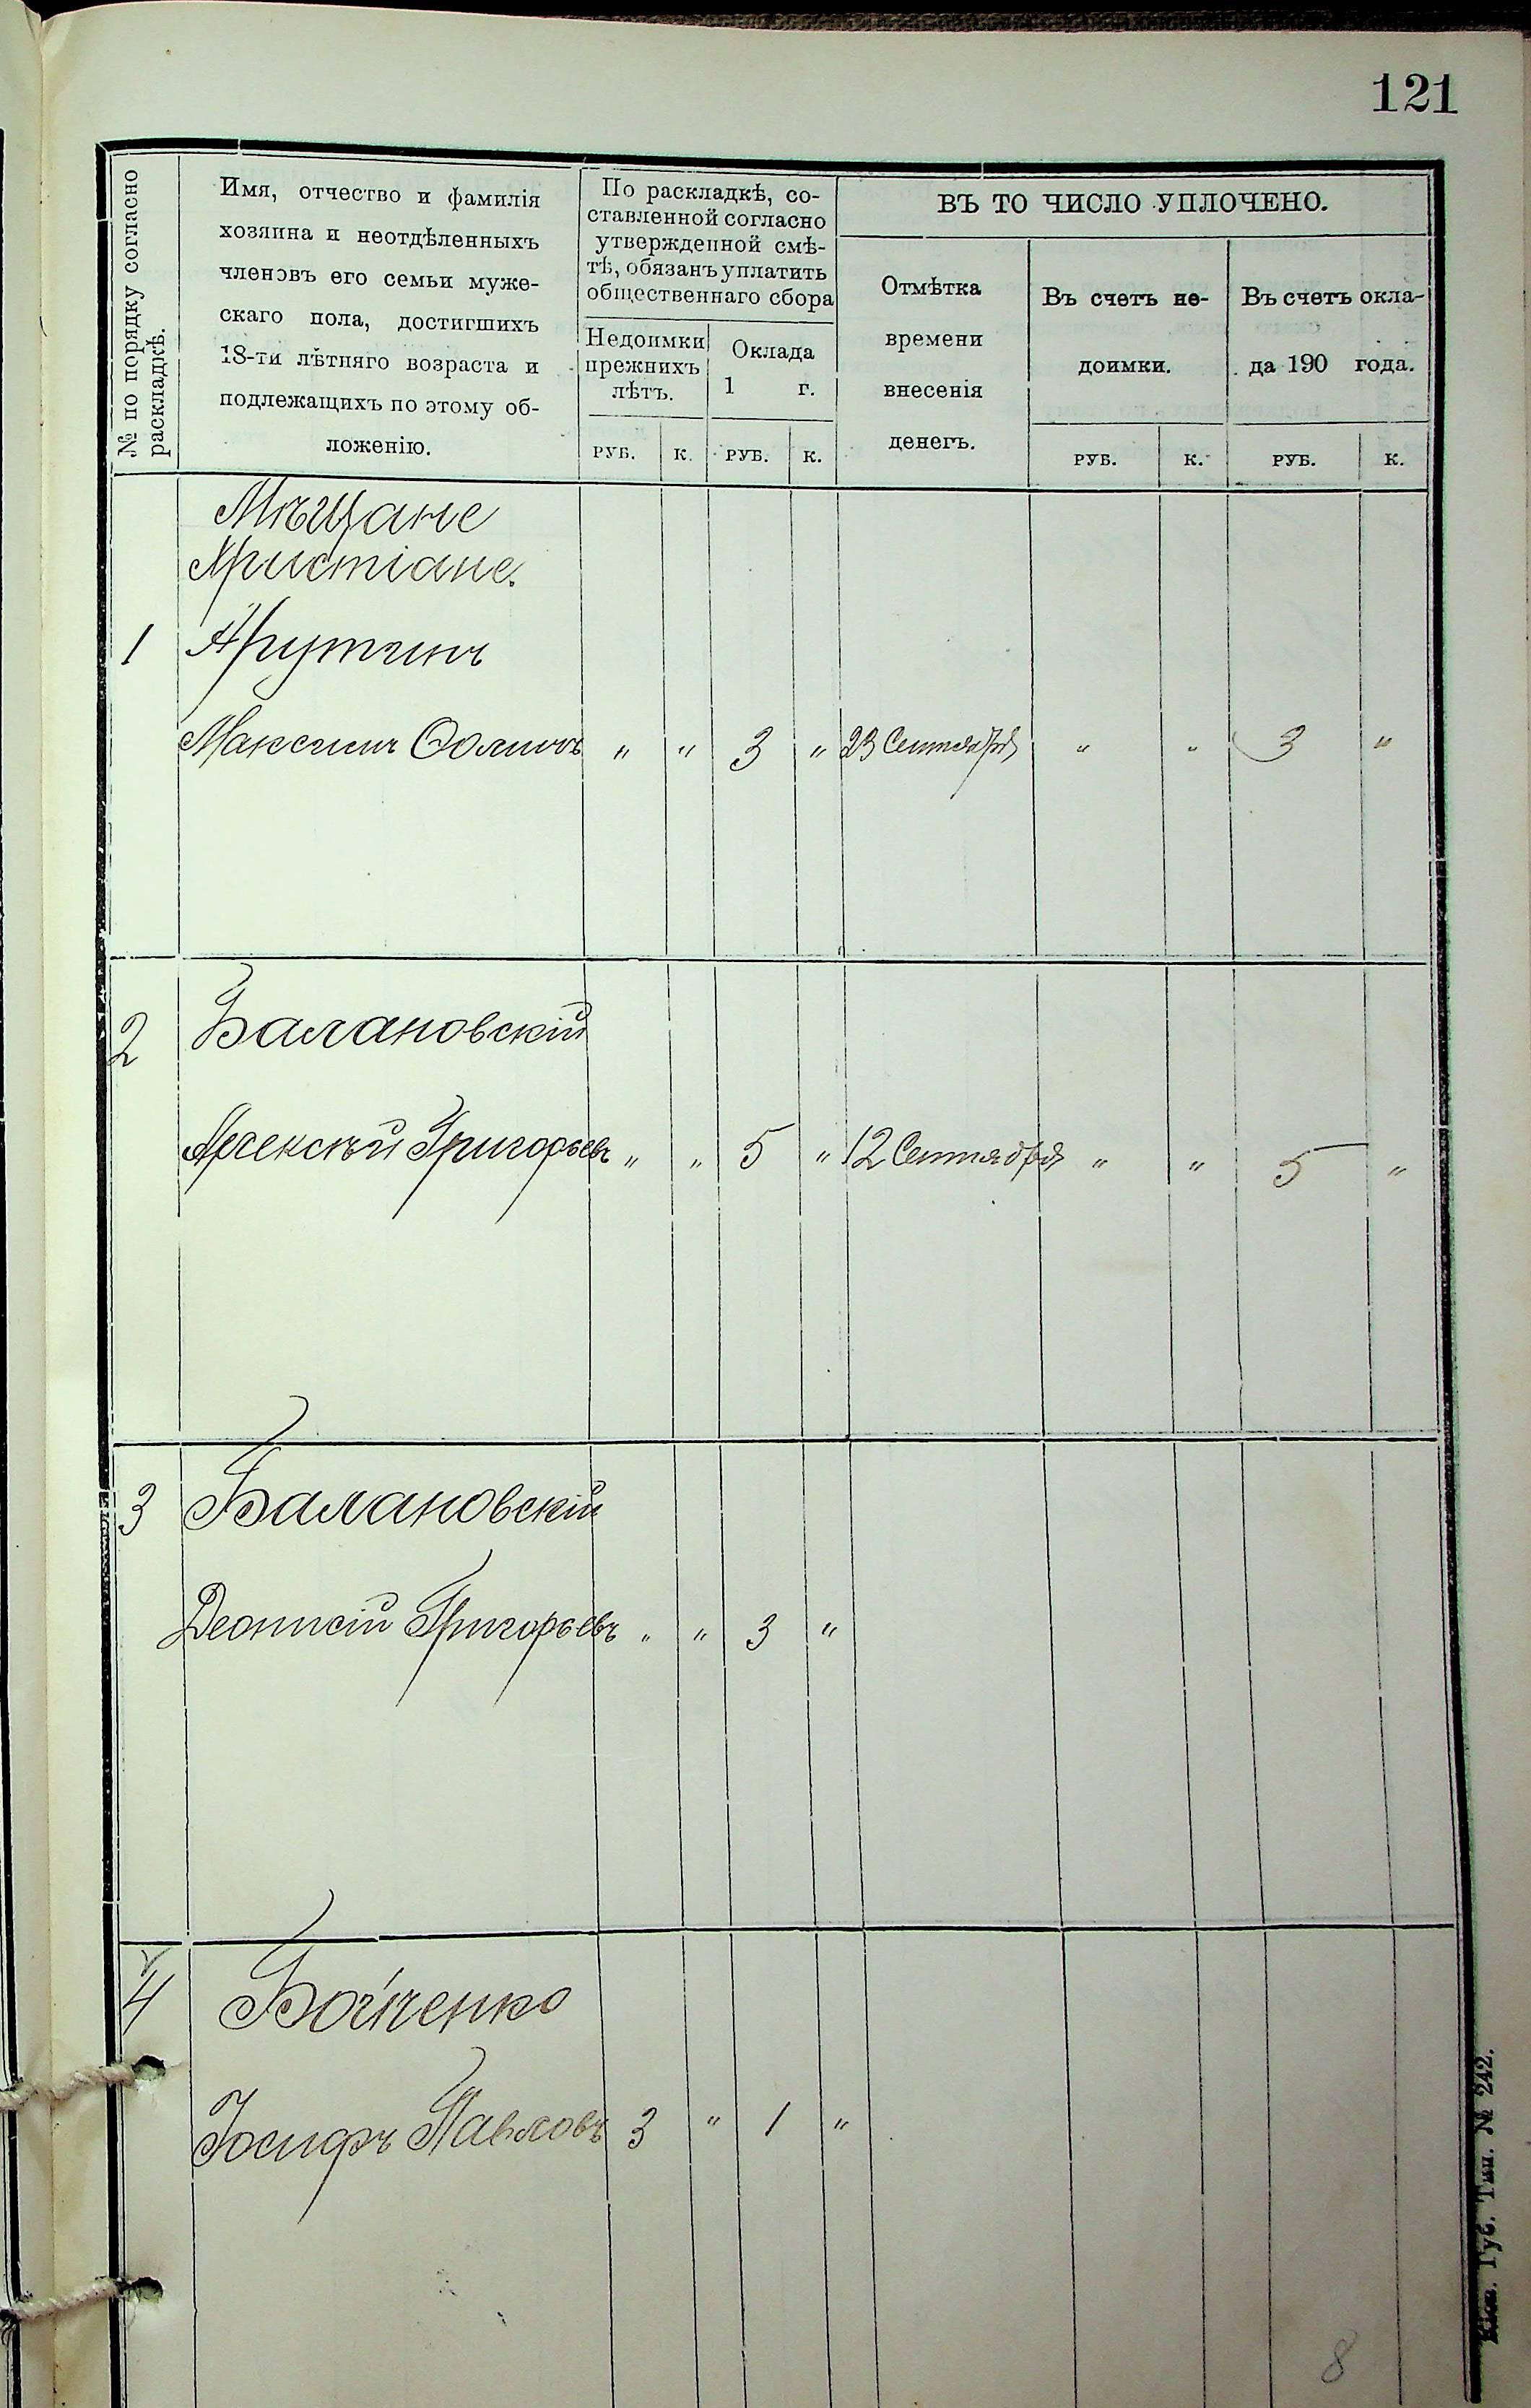 121
№ по порядку согласно
раскладкѣ.
Имя, отчество и фамилія
хозяина и неотдѣленныхъ
членовъ его семьи муже-
скаго пола, достигшихъ
18-ти лѣтняго возраста и
подлежащихъ по этому об-
ложенію.
По раскладкѣ, со-
ставленной согласно
утвержденной смѣ-
тѣ, обязанъ уплатить
общественнаго сбора
Недоимки
прежнихъ
лѣтъ.
Оклада
1 г.
РУБ. К. РУБ. К.
ВЪ ТО ЧИСЛО УПЛОЧЕНО.
Отмѣтка
времени
внесенія
денегъ.
Въ счетъ не-
доимки.
РУБ. К.
Въ счетъ окла-
да 190 года.
РУБ. К.
Мѣщане
Христіане.
1 Арутинъ
Максимъ " " 3 " 23 Сентября " " 3 "
2 Балановскій
Алексѣй Григорьевъ " " 5 " 12 Сентября " " 5 "
3 Балановскій
Деонисій Григорьевъ " " 3 "
4 Бойченко
Іосифъ Павловъ 3 " 1 "
8
Губ. Тип. № 242.